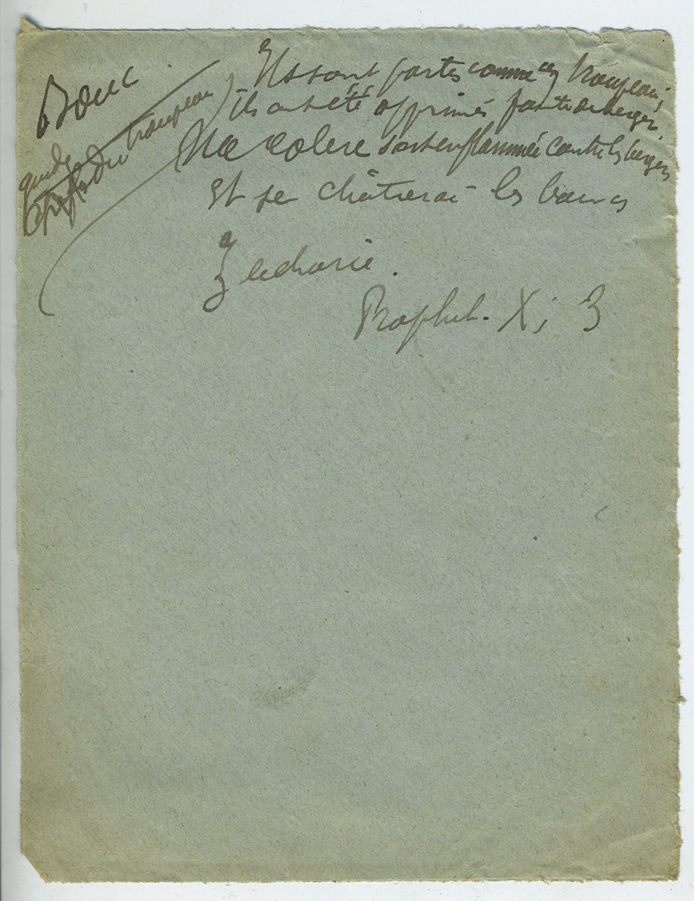 Bouc
guide
chef du troupeau
Ils sont partis comme des troupeaux,
ils ont été opprimés faute de berger.
Ma colère s'est enflammée contre les bergers
Et je châtierai les boucs
Zacharie.
Prophet. X, 3